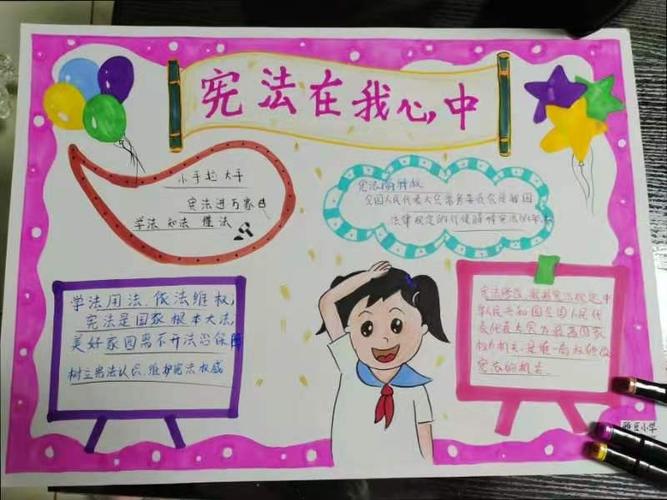 宪法在我心中
小手拉大手
宪法进万家
学法 知法 懂法
宪法解释权
全国人民代表大会常务委员会是我国
法律规定的行使解释宪法的
学法用法.依法维权,
宪法是国家根本大法,
美好家园离不开法治保障
树立宪法认识.维护宪法权威
宪法修改.根据宪法规定.中
华人民共和国全国人民代
表代表大会为最高国家
权力机关.是唯一有权修改
宪法的机关.
小学